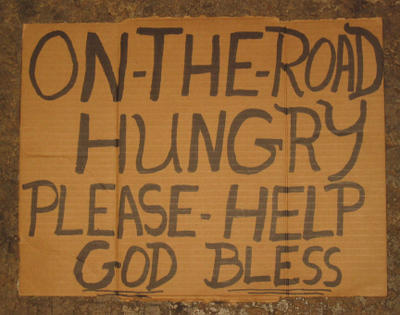 ON-THE-ROAD
HUNGRY
PLEASE-HELP
GOD BLESS